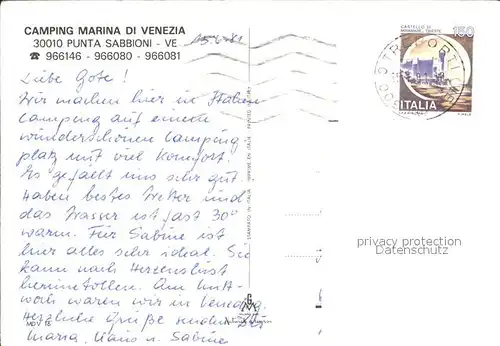 CAMPING MARINA DI VENEZIA
30010 PUNTA SABBIONI - VE
☎ 966146 - 966080 - 966081
15.6.81
CASTELLO DI
MIRAMARE - TRIESTE
150
ITALIA
Liebe Gote!
Wir machen hier in Italien
Camping auf einem
wunderschönen Camping
platz mit viel Komfort.
Es gefällt uns sehr gut.
Haben bestes Wetter und
das Wasser ist fast 30°
warm. Für Sabine ist
hier alles sehr ideal. Sie
kann nach Herzenslust
herumtollen. Am Mitt-
woch waren wir in Venedig.
Herzliche Grüße
Maria, Hans u. Sabine
MDV 15
privacy protection
Datenschutz